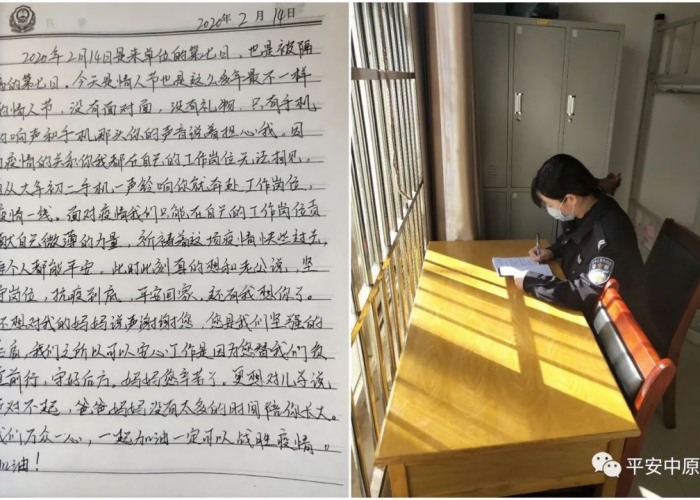 2020年2月14日
2020年2月14日是来单位的第七日,也是被隔
的第七日。今天是情人节也是这么多年最不一样
的情人节,没有面对面,没有礼物,只有手机
的响声和手机那头你的声音说着担心我,因
疫情的关系你我都在自己的工作岗位无法相见。
从大年初二手机一声铃响你就奔赴工作岗位,
疫情一线。面对疫情我们只能在自己的工作岗位贡
献自己微薄的力量,祈祷着这场疫情快些过去,
每个人都能平安,此时此刻真的想和老公说,坚
守岗位,抗疫到底,平安回家,还有我想你了。
还想对我的妈妈说声谢谢您,您是我们坚强的
后盾,我们之所以可以安心工作是因为您替我们负
重前行,守好后方,妈妈您辛苦了。更想对儿子说
对不起,爸爸妈妈没有太多的时间陪你长大。
我们万众一心,一起加油一定可以战胜疫情。
加油!
平安中原